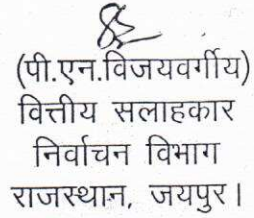 (पी.एन.विजयवर्गीय)
वित्तीय सलाहकार
निर्वाचन विभाग
राजस्थान, जयपुर।